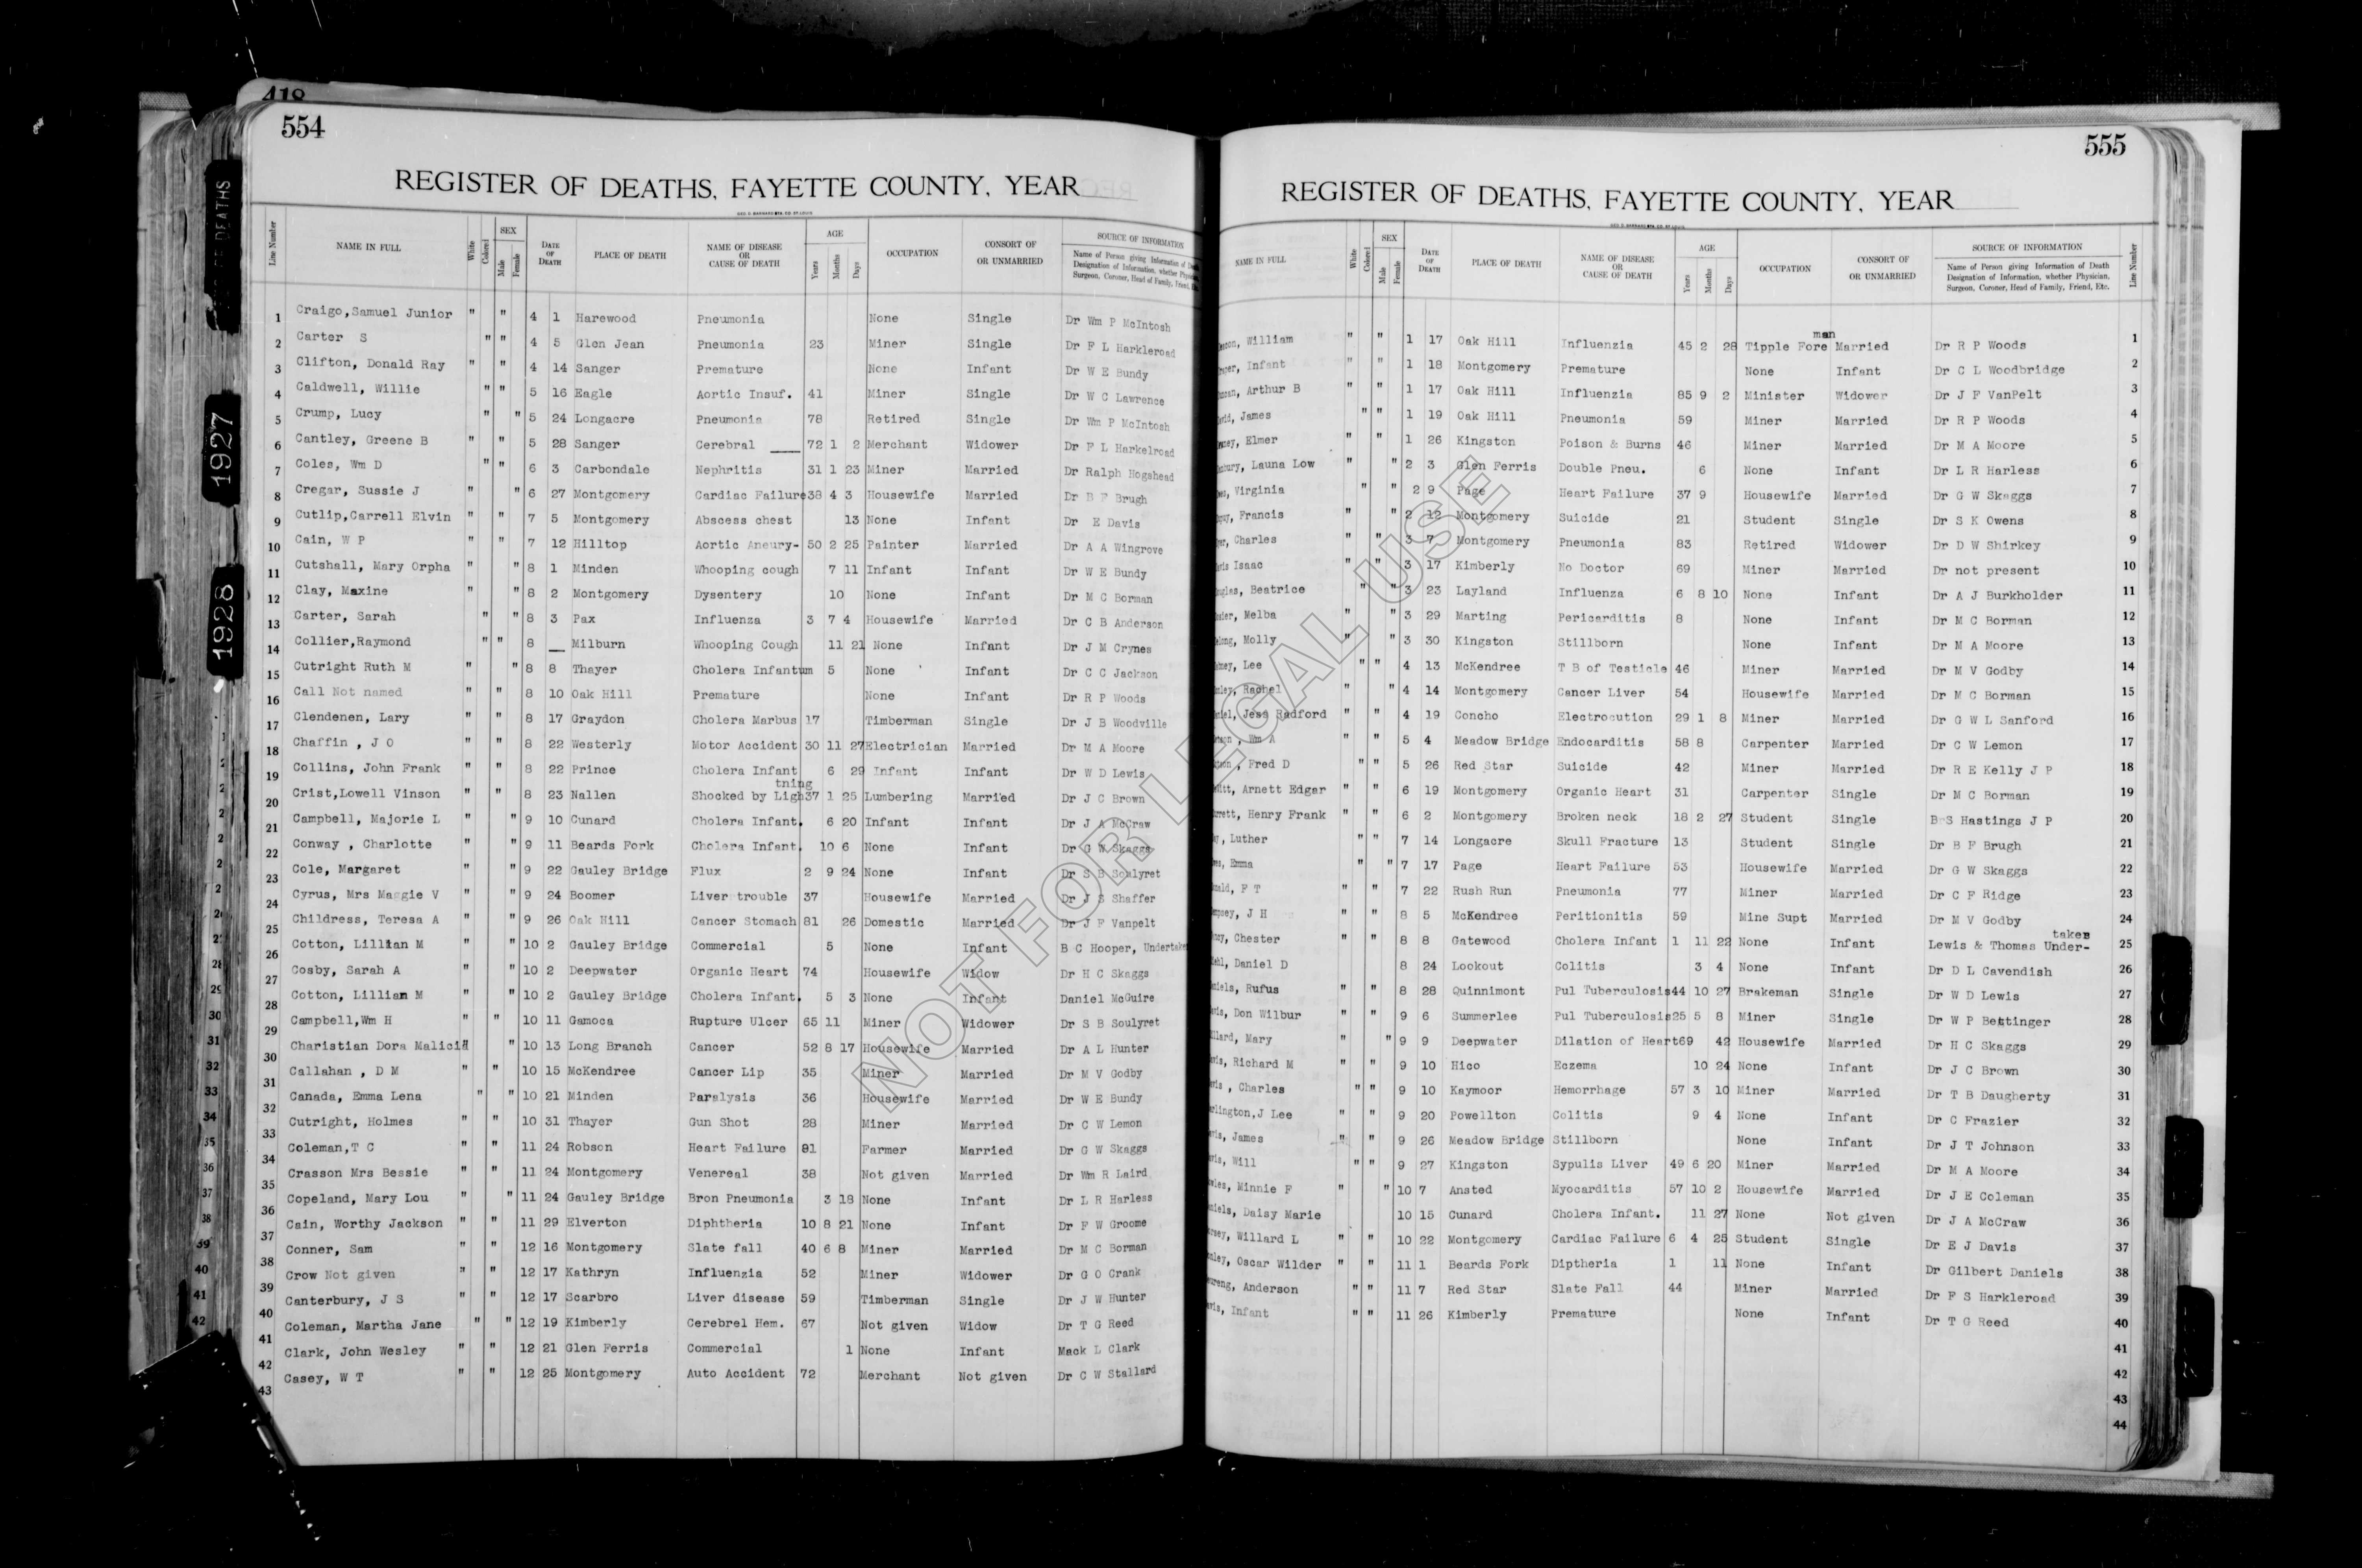 418
554
REGISTER OF DEATHS, FAYETTE COUNTY, YEAR
Line Number NAME IN FULL White Colored SEX Male Female DATE OF DEATH PLACE OF DEATH NAME OF DISEASE OR CAUSE OF DEATH AGE Years Months Days OCCUPATION CONSORT OF OR UNMARRIED SOURCE OF INFORMATION
Name of Person giving Information of Death
Designation of Information, whether Physician,
Surgeon, Coroner, Head of Family, Friend, Etc.
1 Craigo,Samuel Junior " " 4 1 Harewood Pneumonia None Single Dr Wm P McIntosh
2 Carter S " " 4 5 Glen Jean Pneumonia 23 Miner Single Dr F L Harkleroad
3 Clifton, Donald Ray " " 4 14 Sanger Premature None Infant Dr W E Bundy
4 Caldwell, Willie " " 5 16 Eagle Aortic Insuf. 41 Miner Single Dr W C Lawrence
5 Crump, Lucy " " 5 24 Longacre Pneumonia 78 Retired Single Dr Wm P McIntosh
6 Cantley, Greene B " " 5 28 Sanger Cerebral ____ 72 1 2 Merchant Widower Dr F L Harkelroad
7 Coles, Wm D " " 6 3 Carbondale Nephritis 31 1 23 Miner Married Dr Ralph Hogshead
8 Cregar, Sussie J " " 6 27 Montgomery Cardiac Failure 38 4 3 Housewife Married Dr B F Brugh
9 Cutlip,Carrell Elvin " " 7 5 Montgomery Abscess chest 13 None Infant Dr E Davis
10 Cain, W P " " 7 12 Hilltop Aortic Aneury- 50 2 25 Painter Married Dr A A Wingrove
11 Cutshall, Mary Orpha " " 8 1 Minden Whooping cough 7 11 Infant Infant Dr W E Bundy
12 Clay, Maxine " " 8 2 Montgomery Dysentery 10 None Infant Dr M C Borman
13 Carter, Sarah " " 8 3 Pax Influenza 3 7 4 Housewife Married Dr C B Anderson
14 Collier,Raymond " " 8 __ Milburn Whooping Cough 11 21 None Infant Dr J M Crynes
15 Cutright Ruth M " " 8 8 Thayer Cholera Infantum 5 None Infant Dr C C Jackson
16 Call Not named " " 8 10 Oak Hill Premature None Infant Dr R P Woods
17 Clendenen, Lary " " 8 17 Graydon Cholera Marbus 17 Timberman Single Dr J B Woodville
18 Chaffin , J O " " 8 22 Westerly Motor Accident 30 11 27 Electrician Married Dr M A Moore
19 Collins, John Frank " " 8 22 Prince Cholera Infant 6 29 Infant Infant Dr W D Lewis
tning
20 Crist,Lowell Vinson " " 8 23 Nallen Shocked by Ligh 37 1 25 Lumbering Married Dr J C Brown
21 Campbell, Majorie L " " 9 10 Cunard Cholera Infant. 6 20 Infant Infant Dr J A McCraw
22 Conway , Charlotte " " 9 11 Beards Fork Cholera Infant. 10 6 None Infant Dr G W Skaggs
23 Cole, Margaret " " 9 22 Gauley Bridge Flux 2 9 24 None Infant Dr S B Soulyret
24 Cyrus, Mrs Maggie V " " 9 24 Boomer Liver trouble 37 Housewife Married Dr J S Shaffer
25 Childress, Teresa A " " 9 26 Oak Hill Cancer Stomach 81 26 Domestic Married Dr J F Vanpelt
26 Cotton, Lillian M " " 10 2 Gauley Bridge Commercial 5 None Infant B C Hooper, Undertaker
27 Cosby, Sarah A " " 10 2 Deepwater Organic Heart 74 Housewife Widow Dr H C Skaggs
28 Cotton, Lillian M " " 10 2 Gauley Bridge Cholera Infant. 5 3 None Infant Daniel McGuire
29 Campbell,Wm H " " 10 11 Gamoca Rupture Ulcer 65 11 Miner Widower Dr S B Soulyret
30 Charistian Dora Malicia " " 10 13 Long Branch Cancer 52 8 17 Housewife Married Dr A L Hunter
31 Callahan , D M " " 10 15 McKendree Cancer Lip 35 Miner Married Dr M V Godby
32 Canada, Emma Lena " " 10 21 Minden Paralysis 36 Housewife Married Dr W E Bundy
33 Cutright, Holmes " " 10 31 Thayer Gun Shot 28 Miner Married Dr C W Lemon
34 Coleman,T C " " 11 24 Robson Heart Failure 81 Farmer Married Dr G W Skaggs
35 Crasson Mrs Bessie " " 11 24 Montgomery Venereal 38 Not given Married Dr Wm R Laird
36 Copeland, Mary Lou " " 11 24 Gauley Bridge Bron Pneumonia 3 18 None Infant Dr L R Harless
37 Cain, Worthy Jackson " " 11 29 Elverton Diphtheria 10 8 21 None Infant Dr F W Groome
38 Conner, Sam " " 12 16 Montgomery Slate fall 40 6 8 Miner Married Dr M C Borman
39 Crow Not given " " 12 17 Kathryn Influenzia 52 Miner Widower Dr G O Crank
40 Canterbury, J S " " 12 17 Scarbro Liver disease 59 Timberman Single Dr J W Hunter
41 Coleman, Martha Jane " " 12 19 Kimberly Cerebrel Hem. 67 Not given Widow Dr T G Reed
42 Clark, John Wesley " " 12 21 Glen Ferris Commercial 1 None Infant Mack L Clark
43 Casey, W T " " 12 25 Montgomery Auto Accident 72 Merchant Not given Dr C W Stallard
1927
1928
NOT FOR LEGAL USE
555
REGISTER OF DEATHS, FAYETTE COUNTY, YEAR
NAME IN FULL White Colored SEX Male Female DATE OF DEATH PLACE OF DEATH NAME OF DISEASE OR CAUSE OF DEATH AGE Years Months Days OCCUPATION CONSORT OF OR UNMARRIED SOURCE OF INFORMATION Line Number
Name of Person giving Information of Death
Designation of Information, whether Physician,
Surgeon, Coroner, Head of Family, Friend, Etc.
man
William " " 1 17 Oak Hill Influenzia 45 2 28 Tipple Fore Married Dr R P Woods 1
Infant " " 1 18 Montgomery Premature None Infant Dr C L Woodbridge 2
Arthur B " " 1 17 Oak Hill Influenzia 85 9 2 Minister Widower Dr J F VanPelt 3
James " " 1 19 Oak Hill Pneumonia 59 Miner Married Dr R P Woods 4
Elmer " " 1 26 Kingston Poison & Burns 46 Miner Married Dr M A Moore 5
Launa Low " " 2 3 Glen Ferris Double Pneu. 6 None Infant Dr L R Harless 6
Virginia " " 2 9 Page Heart Failure 37 9 Housewife Married Dr G W Skaggs 7
Francis " " 2 12 Montgomery Suicide 21 Student Single Dr S K Owens 8
Charles " " 3 7 Montgomery Pneumonia 83 Retired Widower Dr D W Shirkey 9
Isaac " " 3 17 Kimberly No Doctor 69 Miner Married Dr not present 10
Beatrice " " 3 23 Layland Influenza 6 8 10 None Infant Dr A J Burkholder 11
Melba " " 3 29 Marting Pericarditis 8 None Infant Dr M C Borman 12
Molly " " 3 30 Kingston Stillborn None Infant Dr M A Moore 13
Lee " " 4 13 McKendree T B of Testicle 46 Miner Married Dr M V Godby 14
Rachel " " 4 14 Montgomery Cancer Liver 54 Housewife Married Dr M C Borman 15
Jess Radford " " 4 19 Concho Electrocution 29 1 8 Miner Married Dr G W L Sanford 16
Wm A " " 5 4 Meadow Bridge Endocarditis 58 8 Carpenter Married Dr C W Lemon 17
Fred D " " 5 26 Red Star Suicide 42 Miner Married Dr R E Kelly J P 18
Arnett Edgar " " 6 19 Montgomery Organic Heart 31 Carpenter Single Dr M C Borman 19
Henry Frank " " 6 2 Montgomery Broken neck 18 2 27 Student Single B S Hastings J P 20
Luther " " 7 14 Longacre Skull Fracture 13 Student Single Dr B F Brugh 21
Emma " " 7 17 Page Heart Failure 53 Housewife Married Dr G W Skaggs 22
F T " " 7 22 Rush Run Pneumonia 77 Miner Married Dr C F Ridge 23
J H " " 8 5 McKendree Peritionitis 59 Mine Supt Married Dr M V Godby 24
taker
Chester " " 8 8 Gatewood Cholera Infant 1 11 22 None Infant Lewis & Thomas Under- 25
Daniel D 8 24 Lookout Colitis 3 4 None Infant Dr D L Cavendish 26
Rufus " " 8 28 Quinnimont Pul Tuberculosis 44 10 27 Brakeman Single Dr W D Lewis 27
Don Wilbur " " 9 6 Summerlee Pul Tuberculosis 25 5 8 Miner Single Dr W P Bettinger 28
Mary " " 9 9 Deepwater Dilation of Heart 69 42 Housewife Married Dr H C Skaggs 29
Richard M " " 9 10 Hico Eczema 10 24 None Infant Dr J C Brown 30
, Charles " " 9 10 Kaymoor Hemorrhage 57 3 10 Miner Married Dr T B Daugherty 31
J Lee " " 9 20 Powellton Colitis 9 4 None Infant Dr C Frazier 32
James " " 9 26 Meadow Bridge Stillborn None Infant Dr J T Johnson 33
Will " " 9 27 Kingston Sypulis Liver 49 6 20 Miner Married Dr M A Moore 34
Minnie F " " 10 7 Ansted Myocarditis 57 10 2 Housewife Married Dr J E Coleman 35
Daisy Marie 10 15 Cunard Cholera Infant. 11 27 None Not given Dr J A McCraw 36
Willard L " " 10 22 Montgomery Cardiac Failure 6 4 25 Student Single Dr E J Davis 37
Oscar Wilder " " 11 1 Beards Fork Diptheria 1 11 None Infant Dr Gilbert Daniels 38
Anderson " " 11 7 Red Star Slate Fall 44 Miner Married Dr F S Harkleroad 39
Infant " " 11 26 Kimberly Premature None Infant Dr T G Reed 40
41
42
43
44